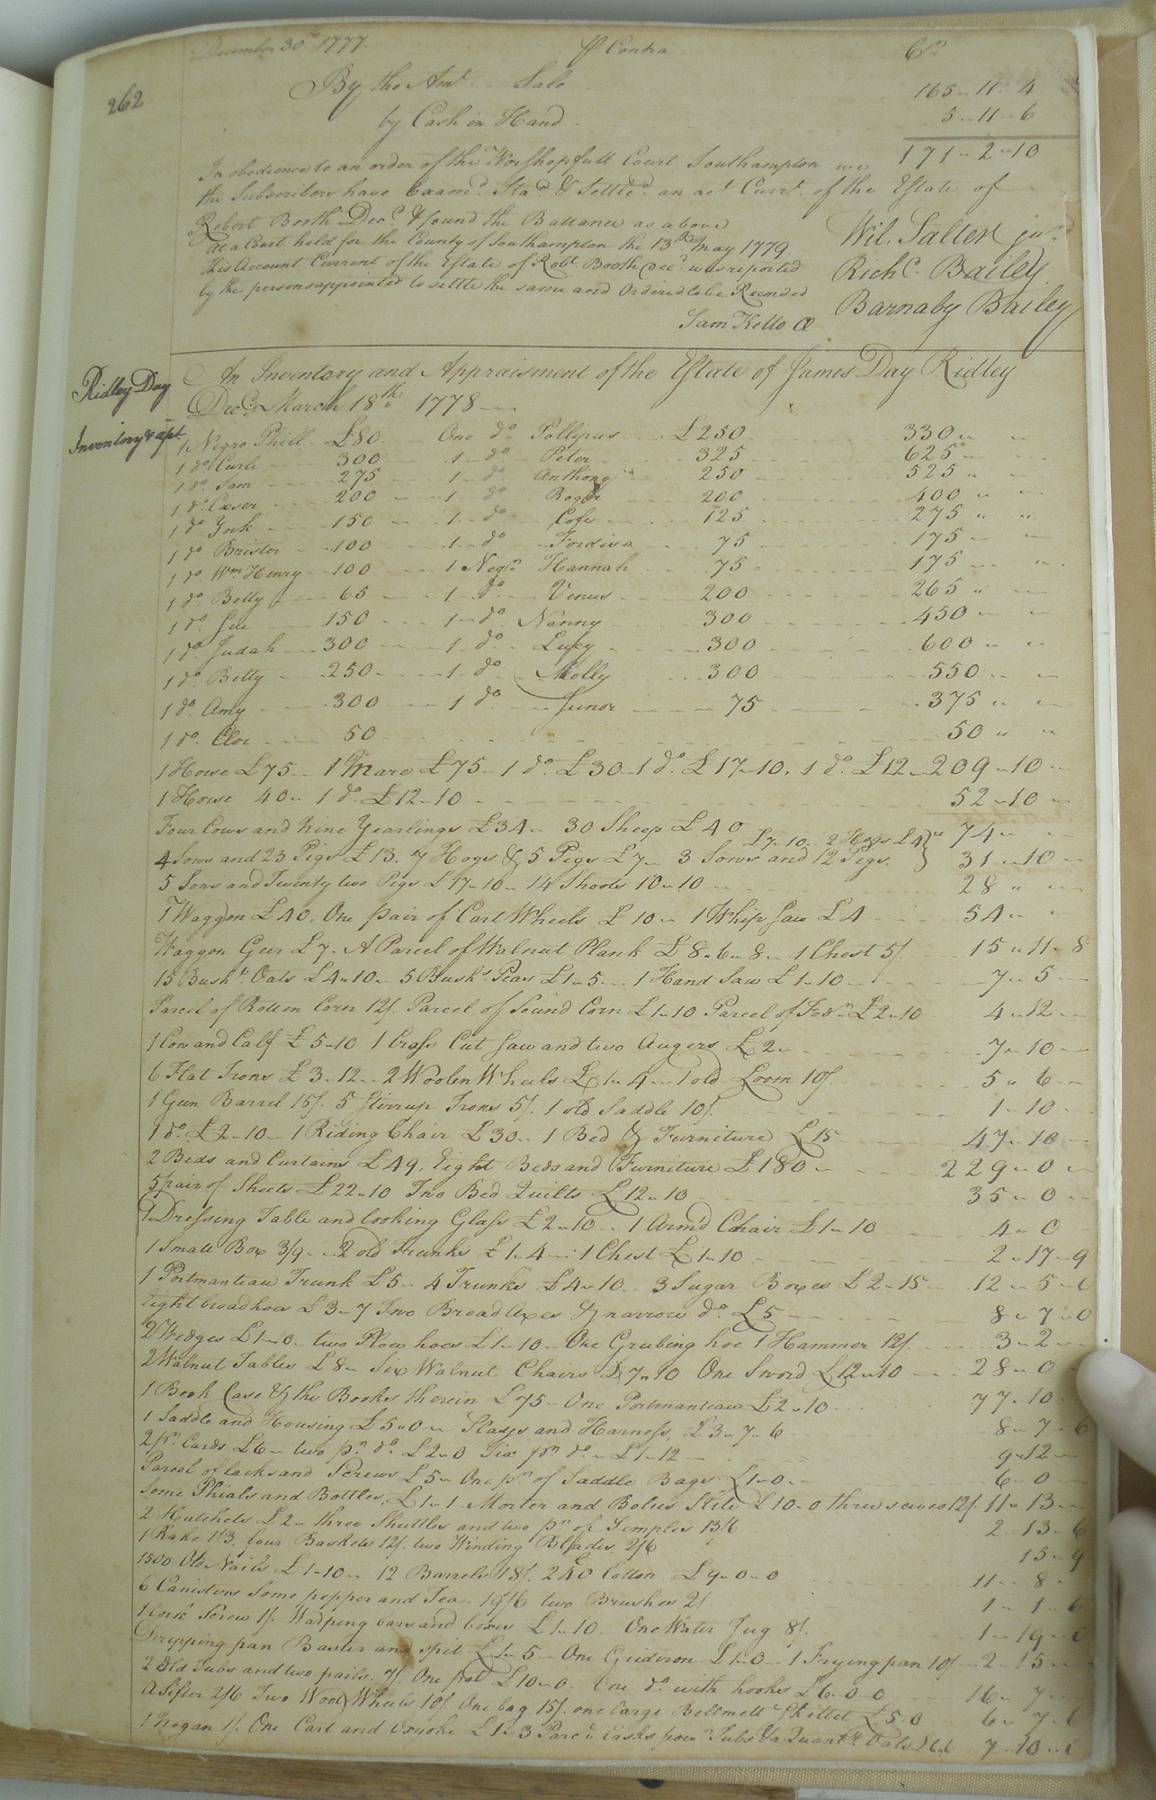 262
December 30th 1777 Pr Contra Cr
By the Amt Sale 165 - 11 - 4
by Cash in Hand 5 - 11 - 6
171 - 2 - 10
In obedience to an order of the Worshopfull Court Southampton we
the Subscribers have Examd. Stad. & Settled. an act Currt. of the Estate of
Robert Booth Decd. & found the Ballance as above
At a Court held for the County of Southampton the 13th May 1779
This Account Current of the Estate of Robt. Booth Decd. was reported
by the persons appointed to settle the same and Ordered to be Recorded
Sam Kello
Wil. Salter junr
Richd. Bailey
Barnaby Bailey
Ridley Day
Inventory & apt.
An Inventory and Appraisment of the Estate of James Day Ridley
Decd. March 18th 1778
1 Negro Phill £80 One do Pollipus £250 330 " "
1 do Curle 300 1 do Peter 325 625
1 do Sam 275 1 do Anthony 250 525 "
1 do Ceser 200 1 do Roger 200 400 " "
1 do York 150 1 do Cofe 125 275 " "
1 do Bristor 100 1 do Fordisa 75 175
1 do Wm Henry 100 1 Negro Hannah 75 175
1 do Betty 65 1 do Venus 200 265 "
1 do Sue 150 1 do Nanny 300 450
1 do Judah 300 1 do Lucy 300 600 "
1 do Betty 250 1 do Molly 300 550
1 do Amy 300 1 do Junor 75 375 "
1 do Cloe 50 50 " "
1 Horse £75 1 Mare £75 - 1 do £30 1 do £17-10. 1 do £12 209 - 10
1 Horse 40 1 do £12-10 52 - 10
Four Cows and Nine Yearlings £34 30 Sheep £40 74
4 Sows and 23 Pigs £13. 7 Hogs & 5 Pigs £7 3 Sows and 12 Pigs. £7-10. 2 Hogs £4 31 - 10
5 Sows and Twenty two Pigs £17-10 14 Shoots 10-10 28 "
1 Waggon £40. One pair of Cart Wheels £10 1 Whip Saw £4 54
Waggon Geer £7. A Parcel of Walnut Plank £8-6-8 1 Chest 5/ 15 - 11 - 8
15 Bushs. Oats £4-10 5 Bushs. Peas £1-5 1 Hand Saw £1-10 7 - 5
Parcel of Rotten Corn 12/ Parcel of Sound Corn £1-10 Parcel of £2-10 4 - 12
1 Cow and Calf £5-10 1 Cross Cut Saw and two Augers £2 7 - 10
6 Flat Irons £3-12 2 Woolen Wheels £1-4 1 old Loom 10/ 5 " 6
1 Gun Barrel 15/. 5 Stirrup Irons 5/. 1 old Saddle 10/. 1 - 10
1 do £2-10 1 Riding Chair £30 1 Bed & Furniture £15 47 - 10
2 Beds and Curtains £49. Eight Beds and Furniture £180 229 - 0
5 pair of Sheets £22-10 Two Bed Quilts £12-10 35 - 0
1 Dressing Table and looking Glass £2-10 1 Arm'd Chair £1-10 4 - 0
1 Small Box 3/9 2 old Trunks £1-4 1 Chest £1-10 2 - 17 - 9
1 Portmanteau Trunk £5 4 Trunks £4-10 3 Sugar Boxes £2-15 12 - 5 - 0
Eight broad hoes £3-7 Two Broad Axes & narrow do £5 8 - 7 - 0
2 Wedges £1-0 two Plow hoes £1-10 One Grubing hoe 1 Hammer 12/. 3 - 2
2 Walnut Tables £8 Six Walnut Chairs £7-10 One Sword £12-10 28 - 0
1 Book Case & the Books therein £75 One Portmanteau £2-10 77 - 10
1 Saddle and Housing £5-0 Stays and Harness £3-7-6 8 - 7 - 6
2 pr. Cards £6 two pr do £2-0 Six pr do £1-12 9 - 12
Parcel of locks and Screws £5 One pr of Saddle Bags £1-0 6 - 0
Some Phials and Bottles, £1-1 Morter and Bolus Stile £10-0 three scives 12/. 11 - 13
2 Hatchels £2 three Shuttles and two pr of Temples 13/6 2 - 13 - 6
1 Rake 1/3. four Baskets 12/. two Winding Blades 2/6 15 - 9
1500 Old Nails £1-10 12 Barrels 18/. Cotton £9-0-0 11 - 8
6 Canisters some pepper and Tea. 19/6 two Brushes 2/. 1 - 1 - 6
1 Cork Screw 1/. Warping bars and boxes £1-10 One Water Jug 8/. 1 - 19 - 0
Dripping pan Baster and spit £1-5 One Gridiron £1-0 1 Frying pan 10/ 2 - 15
2 Old Tubs and two pails. 7/. One pot £10-0 One do with hooks £6-0-0 16 - 7
A Sifter 2/6 Two Wool Wheels 10/. One bag 15/. one large Bellmettle Skillet £5-0 6 - 7 - 6
1 Nogan 1/. One Cart and oxyoke £1-3 Parcl. Casks Tubs & a Quanty. Oats £6.6 7 - 10 - 0